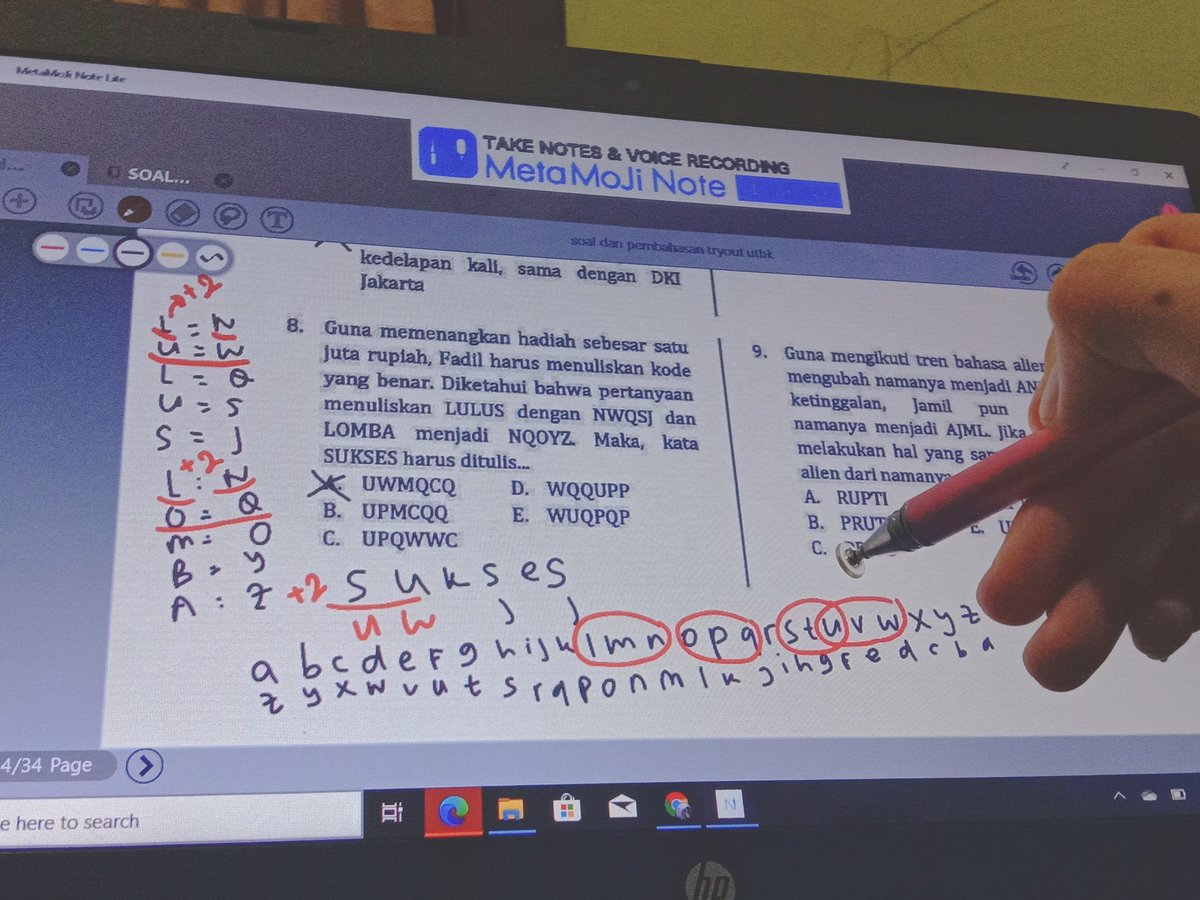 MetaMoJi Note Lite
TAKE NOTES & VOICE RECORDING
MetaMoJi Note
SOAL...
T
soal dan pembahasan tryout utbk
kedelapan kali, sama dengan DKI
Jakarta
8. Guna memenangkan hadiah sebesar satu
juta rupiah, Fadil harus menuliskan kode
yang benar. Diketahui bahwa pertanyaan
menuliskan LULUS dengan NWQSJ dan
LOMBA menjadi NQOYZ. Maka, kata
SUKSES harus ditulis...
UWMQCQ
B. UPMCQQ
C. UPQWWC
D. WQQUPP
E. WUQPQP
9. Guna mengikuti tren bahasa alien
mengubah namanya menjadi AN
ketinggalan, Jamil pun
namanya menjadi AJML. Jika
melakukan hal yang
alien dari namanya
A. RUPTI
B. PRUT
C.
E. U
+2
L = N
U = W
L = Q
U = S
S = J
+2
L : N
O = Q
m = O
B = y
A : Z
+2 S U K S e S
U W J J
a b c d e F g h i j k l m n o p q r s t u v w x y z
z y x w v u t s r q p o n m l k j i h g f e d c b a
4/34 Page
e here to search
hp